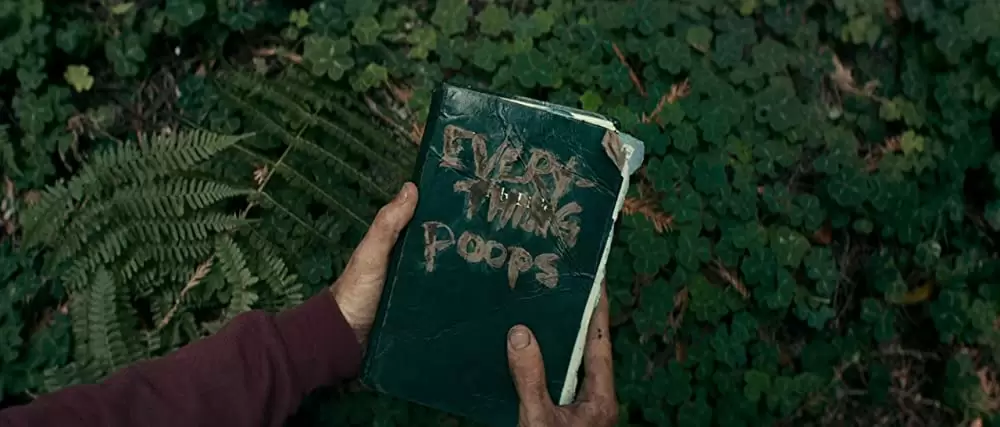 EVERY-
THING
POOPS